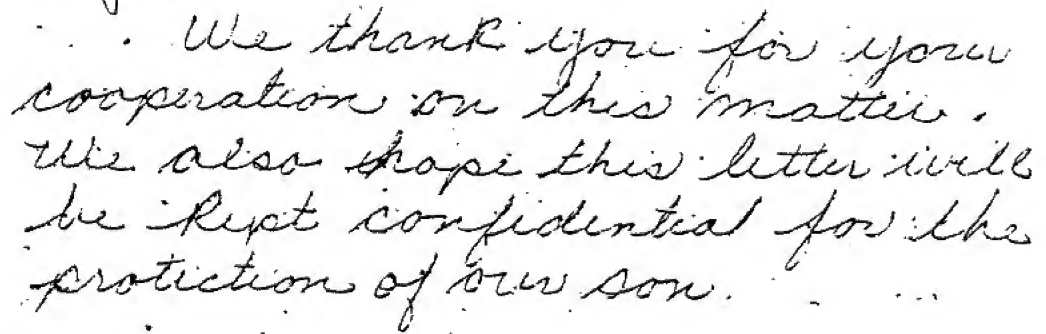 We thank you for your
cooperation on this matter.
We also hope this letter will
be kept confidential for the
protection of our son.